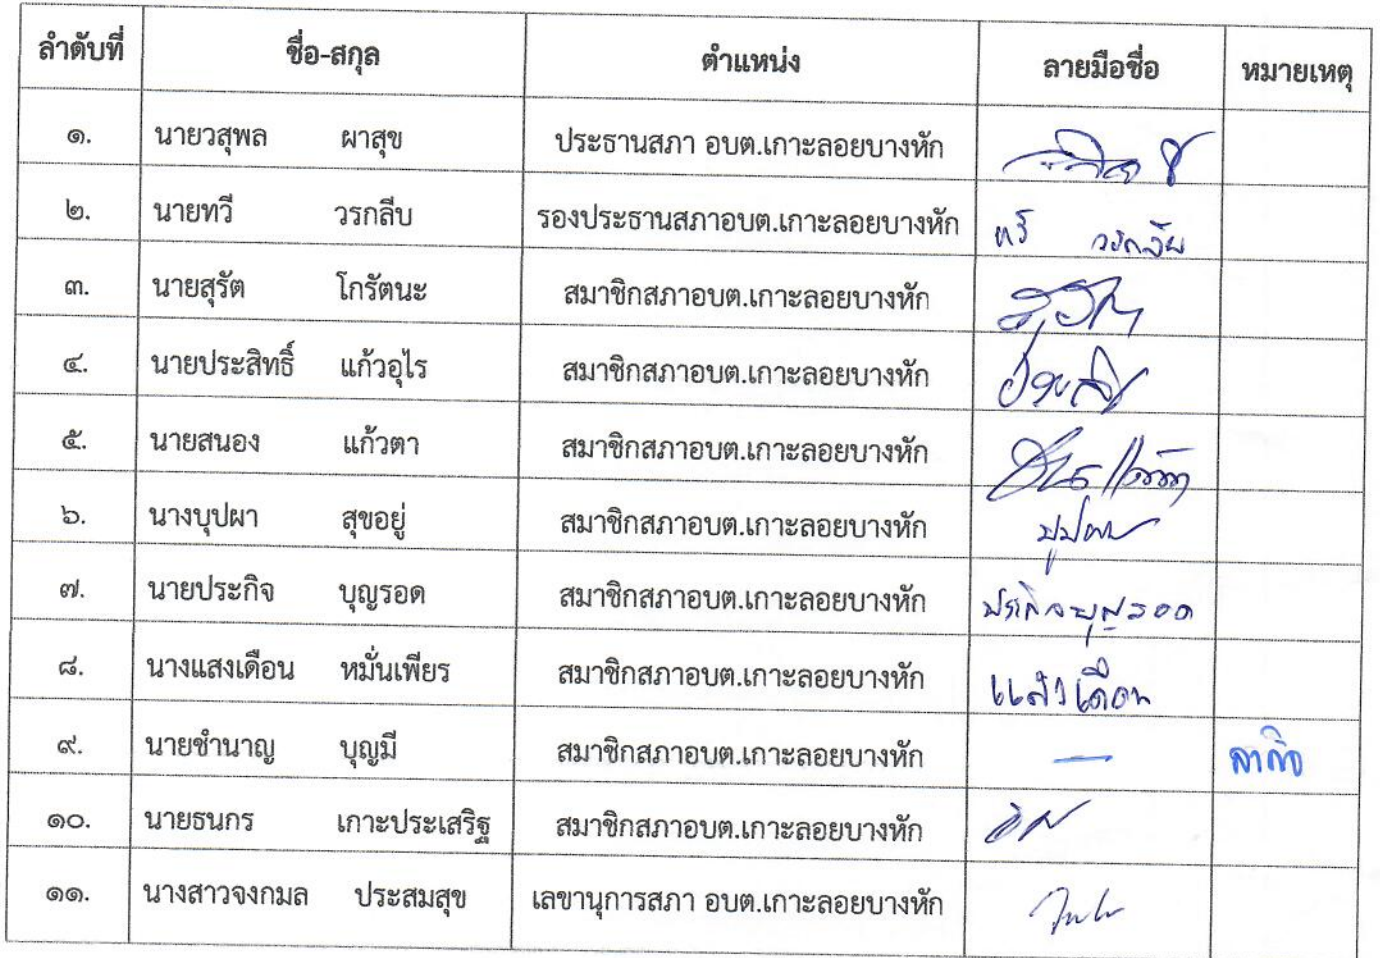 ลำดับที่ ชื่อ-สกุล ตำแหน่ง ลายมือชื่อ หมายเหตุ
๑. นายวสุพล ผาสุข ประธานสภา อบต.เกาะลอยบางหัก
๒. นายทวี วรกลีบ รองประธานสภาอบต.เกาะลอยบางหัก ทวี วรกลีบ
๓. นายสุรัต โกรัตนะ สมาชิกสภาอบต.เกาะลอยบางหัก
๔. นายประสิทธิ์ แก้วอุไร สมาชิกสภาอบต.เกาะลอยบางหัก
๕. นายสนอง แก้วตา สมาชิกสภาอบต.เกาะลอยบางหัก
๖. นางบุปผา สุขอยู่ สมาชิกสภาอบต.เกาะลอยบางหัก บุปผา
๗. นายประกิจ บุญรอด สมาชิกสภาอบต.เกาะลอยบางหัก ประกิจ บุญรอด
๘. นางแสงเดือน หมั่นเพียร สมาชิกสภาอบต.เกาะลอยบางหัก แสงเดือน
๙. นายชำนาญ บุญมี สมาชิกสภาอบต.เกาะลอยบางหัก — ลากิจ
๑๐. นายธนกร เกาะประเสริฐ สมาชิกสภาอบต.เกาะลอยบางหัก
๑๑. นางสาวจงกมล ประสมสุข เลขานุการสภา อบต.เกาะลอยบางหัก